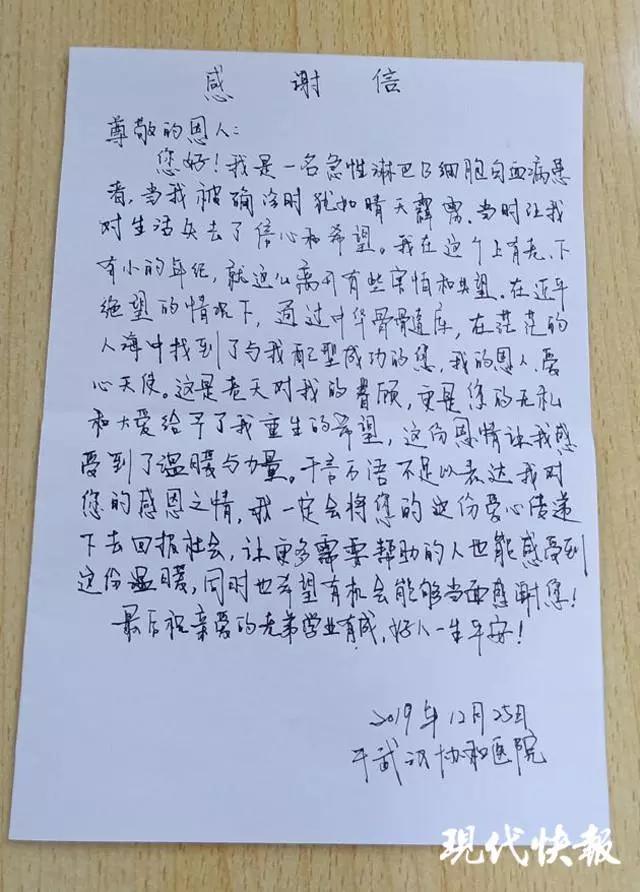 感谢信
尊敬的恩人:
您好!我是一名急性淋巴B细胞白血病患
者,当我被确诊时犹如晴天霹雳.当时让我
对生活失去了信心和希望。我在这个上有老、下
有小的年纪,就这么离开有些害怕和失望.在近乎
绝望的情况下,通过中华骨髓库,在茫茫的
人海中找到了与我配型成功的您,我的恩人,爱
心天使。这是老天对我的眷顾,更是您的无私
和大爱给予了我重生的希望,这份恩情让我感
受到了温暖与力量。千言万语不足以表达我对
您的感恩之情,我一定会将您的这份爱心传递
下去回报社会,让更多需要帮助的人也能感受到
这份温暖,同时也希望有机会能够当面感谢您!
最后祝亲爱的兄弟学业有成,好人一生平安!
2019年12月25日
于武汉协和医院
现代快报